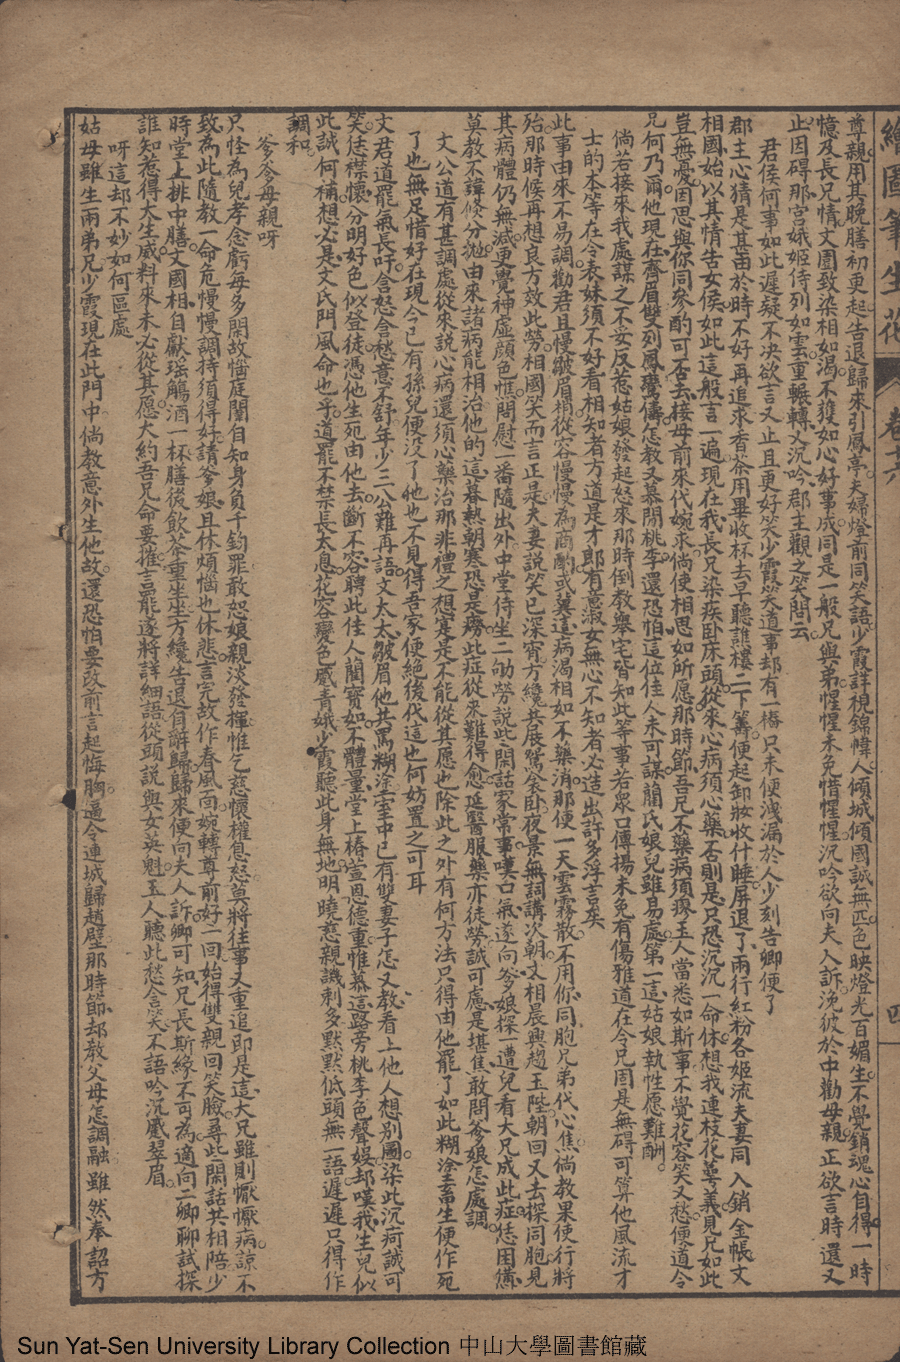 繪圖筆生花 卷六 四
尊親用其晚膳初更起告退歸來引鳳亭夫婦燈前同笑語少霞詳視錦幃人傾城傾國誠無匹色映燈光百媚生不覺銷魂心自得一時
憶及長兄情丈園致染相如渴不獲如心好事成同是一般兄與弟惺惺未免惜惺惺沉吟欲向夫人訴浼彼於中勸母親正欲言時還又
止因碍那宮娥姬侍列如雲重輾轉又沉吟郡主觀之笑問云
君侯何事如此遲疑不决欲言又止且更好笑少霞笑道事却有一樁只未便洩漏於人少刻告卿便了
郡主心猜是甚由於時不好再追求香茶用畢收杯去早聽譙樓二下籌便起卸妝收什睡屏退了兩行紅粉各姬流夫妻同入銷金帳文
相國始以其情告女侯如此這般言一遍現在我長兄染疾卧床頭從來心病須心藥否則是只恐沉沉一命休想我連枝花萼義見兄如此
豈無憂因思與你同參酌可否去接母前來代婉求倘使相思如所愿那時節吾兄不藥病須瘳玉人當悉如斯事不覺花容笑又愁便道令
兄何乃爾他現在齊眉雙列鳳鸞儔怎教又慕閒桃李還恐怕這位佳人未可謀藺氏娘兒雖易處第一這姑娘執性愿難酬
倘若接來我處謀之不妥反惹姑娘發起怒來那時倒教舉宅皆知此等事若眾口傳揚未免有傷雅道在令兄固是無碍可算他風流才
士的本等在令表妹須不好看相知者方道是才郎有意淑女無心不知者必造出許多浮言矣
此事由來不易調勸君且慢皺眉梢從容慢慢為商酌或冀這病渴相如不藥消那便一天雲霧散不用你同胞兄弟代心焦倘教果使行將
殆那時候再想良方效此勞相國笑而言正是夫妻説笑已深宵方纔共展鴛衾卧夜景無詞講次朝文相晨興趨玉陛朝回又去探同胞見
其病體仍無減更覺神虛顏色憔問慰一番隨出外中堂侍坐二劬勞説此閒話家常事嘆口氣遂向爹娘探一遭兒看大兄成此症恁困憊
莫教不諱倏分抛由來諸病能相治他的這暮熱朝寒恐是癆此症從來難得愈延醫服藥亦徒勞誠可慮是堪焦敢問爹娘怎處調
文公道有甚調處從來説心病還須心藥治那非禮之想寔是不能從其愿也除此之外有何方法只得由他罷了如此糊塗畜生便作死
了也無足惜好在現今已有孫兒便没了他也不見得吾家便絕後代這也何妨置之可耳
文君道罷氣長吁含怒含愁意不舒年少三公難再語文太太皺眉他共罵糊塗室中已有雙妻子怎又教看上他人想别圖染此沉疴誠可
笑恁襟懷分明好色似登徒憑他生死由他去斷不容聘此佳人藺寳如不體量堂上椿萱恩德重惟慕這路旁桃李色聲娱却嘆我生兒似
此誠何補想必是文氏門風命也乎道罷不禁長太息花容變色戚青娥少霞聽此身無地明曉慈親譏刺多默默低頭無一語遲遲只得作
調和
爹爹母親呀
只怪為兒孝念虧每多閒故惱庭闈自知身負千鈞罪敢恕娘親淡發揮惟乞慈懷權息怒莫將往事又重追即是這大兄雖則懨懨病諒不
致為此隨教一命危慢慢調持須得好請爹娘且休煩惱也休悲言完故作春風面婉轉尊前好一回始得雙親回笑臉尋此閒話共相陪少
時堂上排中膳文國相自獻瑤觴酒一杯膳後飲茶重坐坐方纔告退自辭歸歸來便向夫人訴卿可知兄長斯緣不可為適向二卿聊試探
誰知惹得大生威料來未必從其愿大約吾兄命要摧言罷遂將詳細語從頭説與女英魁玉人聽此愁含笑不語吟沉蹙翠眉
呀這却不妙如何區處
姑母雖生兩弟兄少霞現在此門中倘教意外生他故還恐怕要改前言起悔胸逼令連城歸趙壁那時節却教父母怎調融雖然奉詔方
Sun Yat-Sen University Library Collection 中山大學圖書館藏